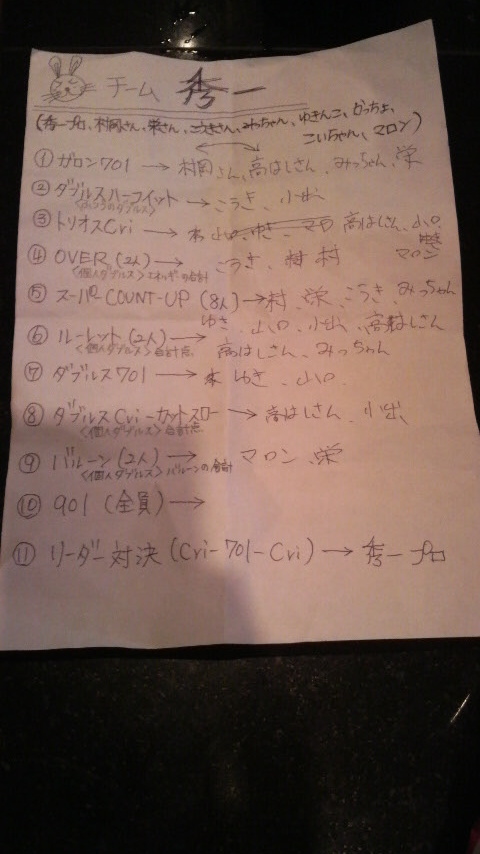 チーム 秀一
(秀一プロ、村岡さん、栄さん、こうきさん、みっちゃん、ゆきんこ、
こいちゃん、マロン)
① ガロン701 → 村岡さん、高はしさん、みっちゃん、栄
② ダブルスハーフイット → こうき、小出
<ふつうのダブルス>
③ トリオスCri → 山口 高はしさん、山口、
ゆき
マロン
④ OVER (2人) → こうき、村
<個人ダブルス>
⑤ スーパーCOUNT-UP (8人) → 村、栄、こうき、みっちゃん
ゆき、山口、小出、高はしさん
⑥ ルーレット (2人) → 高はしさん、みっちゃん
<個人ダブルス> 合計点
⑦ ダブルス701 → ゆき、山口
⑧ ダブルスCri-カットスロー → 高はしさん、小出、
<個人ダブルス> 合計点
⑨ バルーン (2人) → マロン、栄
<個人ダブルス> バルーンの合計
⑩ 901 (全員) →
⑪ リーダー対決 (Cri-701-Cri) → 秀一プロ